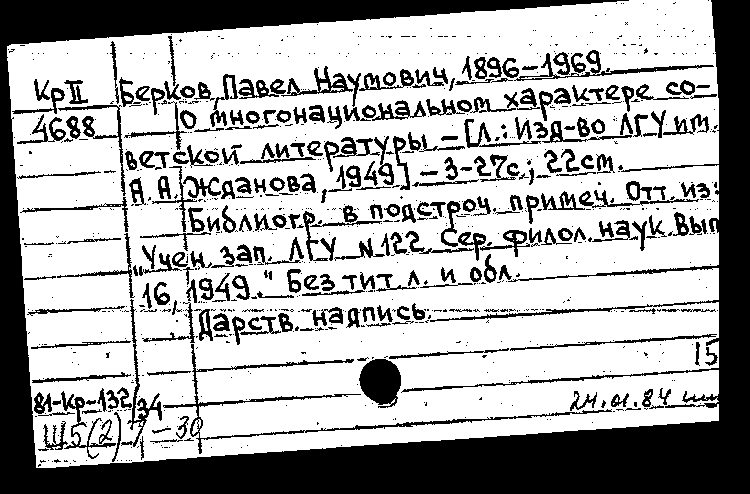 Кр II Берков, Павел Наумович, 1896–1969.
4688 О многонациональном характере со-
ветской литературы. – [Л.: Изд-во ЛГУ им.
А. А. Жданова, 1949]. – 3-27с.; 22см.
Библиогр. в подстроч. примеч. Отт. из:
„Учен. зап. ЛГУ N122. Сер. филол. наук. Вып
16, 1949." Без тит. л. и обл.
Дарств. надпись.
15
81-Кр-132/34
24.01.84
Ш5(2)7-30